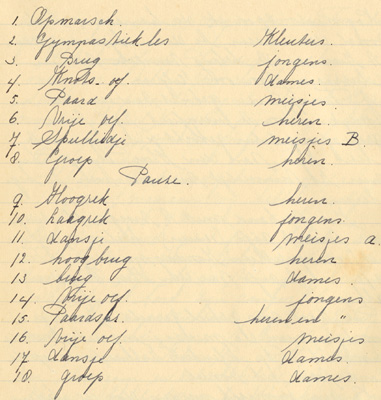 1. Opmarsch.
2. Gympastiekles Kleuters.
3. Brug jongens.
4. Knots-oef. dames.
5. Paard meisjes
6. Vrije oef. heren.
7. meisjes B.
8. Groep heren.
Pauze.
9. Hoogrek heren.
10. Laagrek jongens.
11. dansje meisjes a.
12. hoog brug heren
13 brug dames.
14. Vrije oef. jongens
15. Paardspr. heren en "
16. Vrije oef meisjes
17. dansje dames.
18. groep dames.